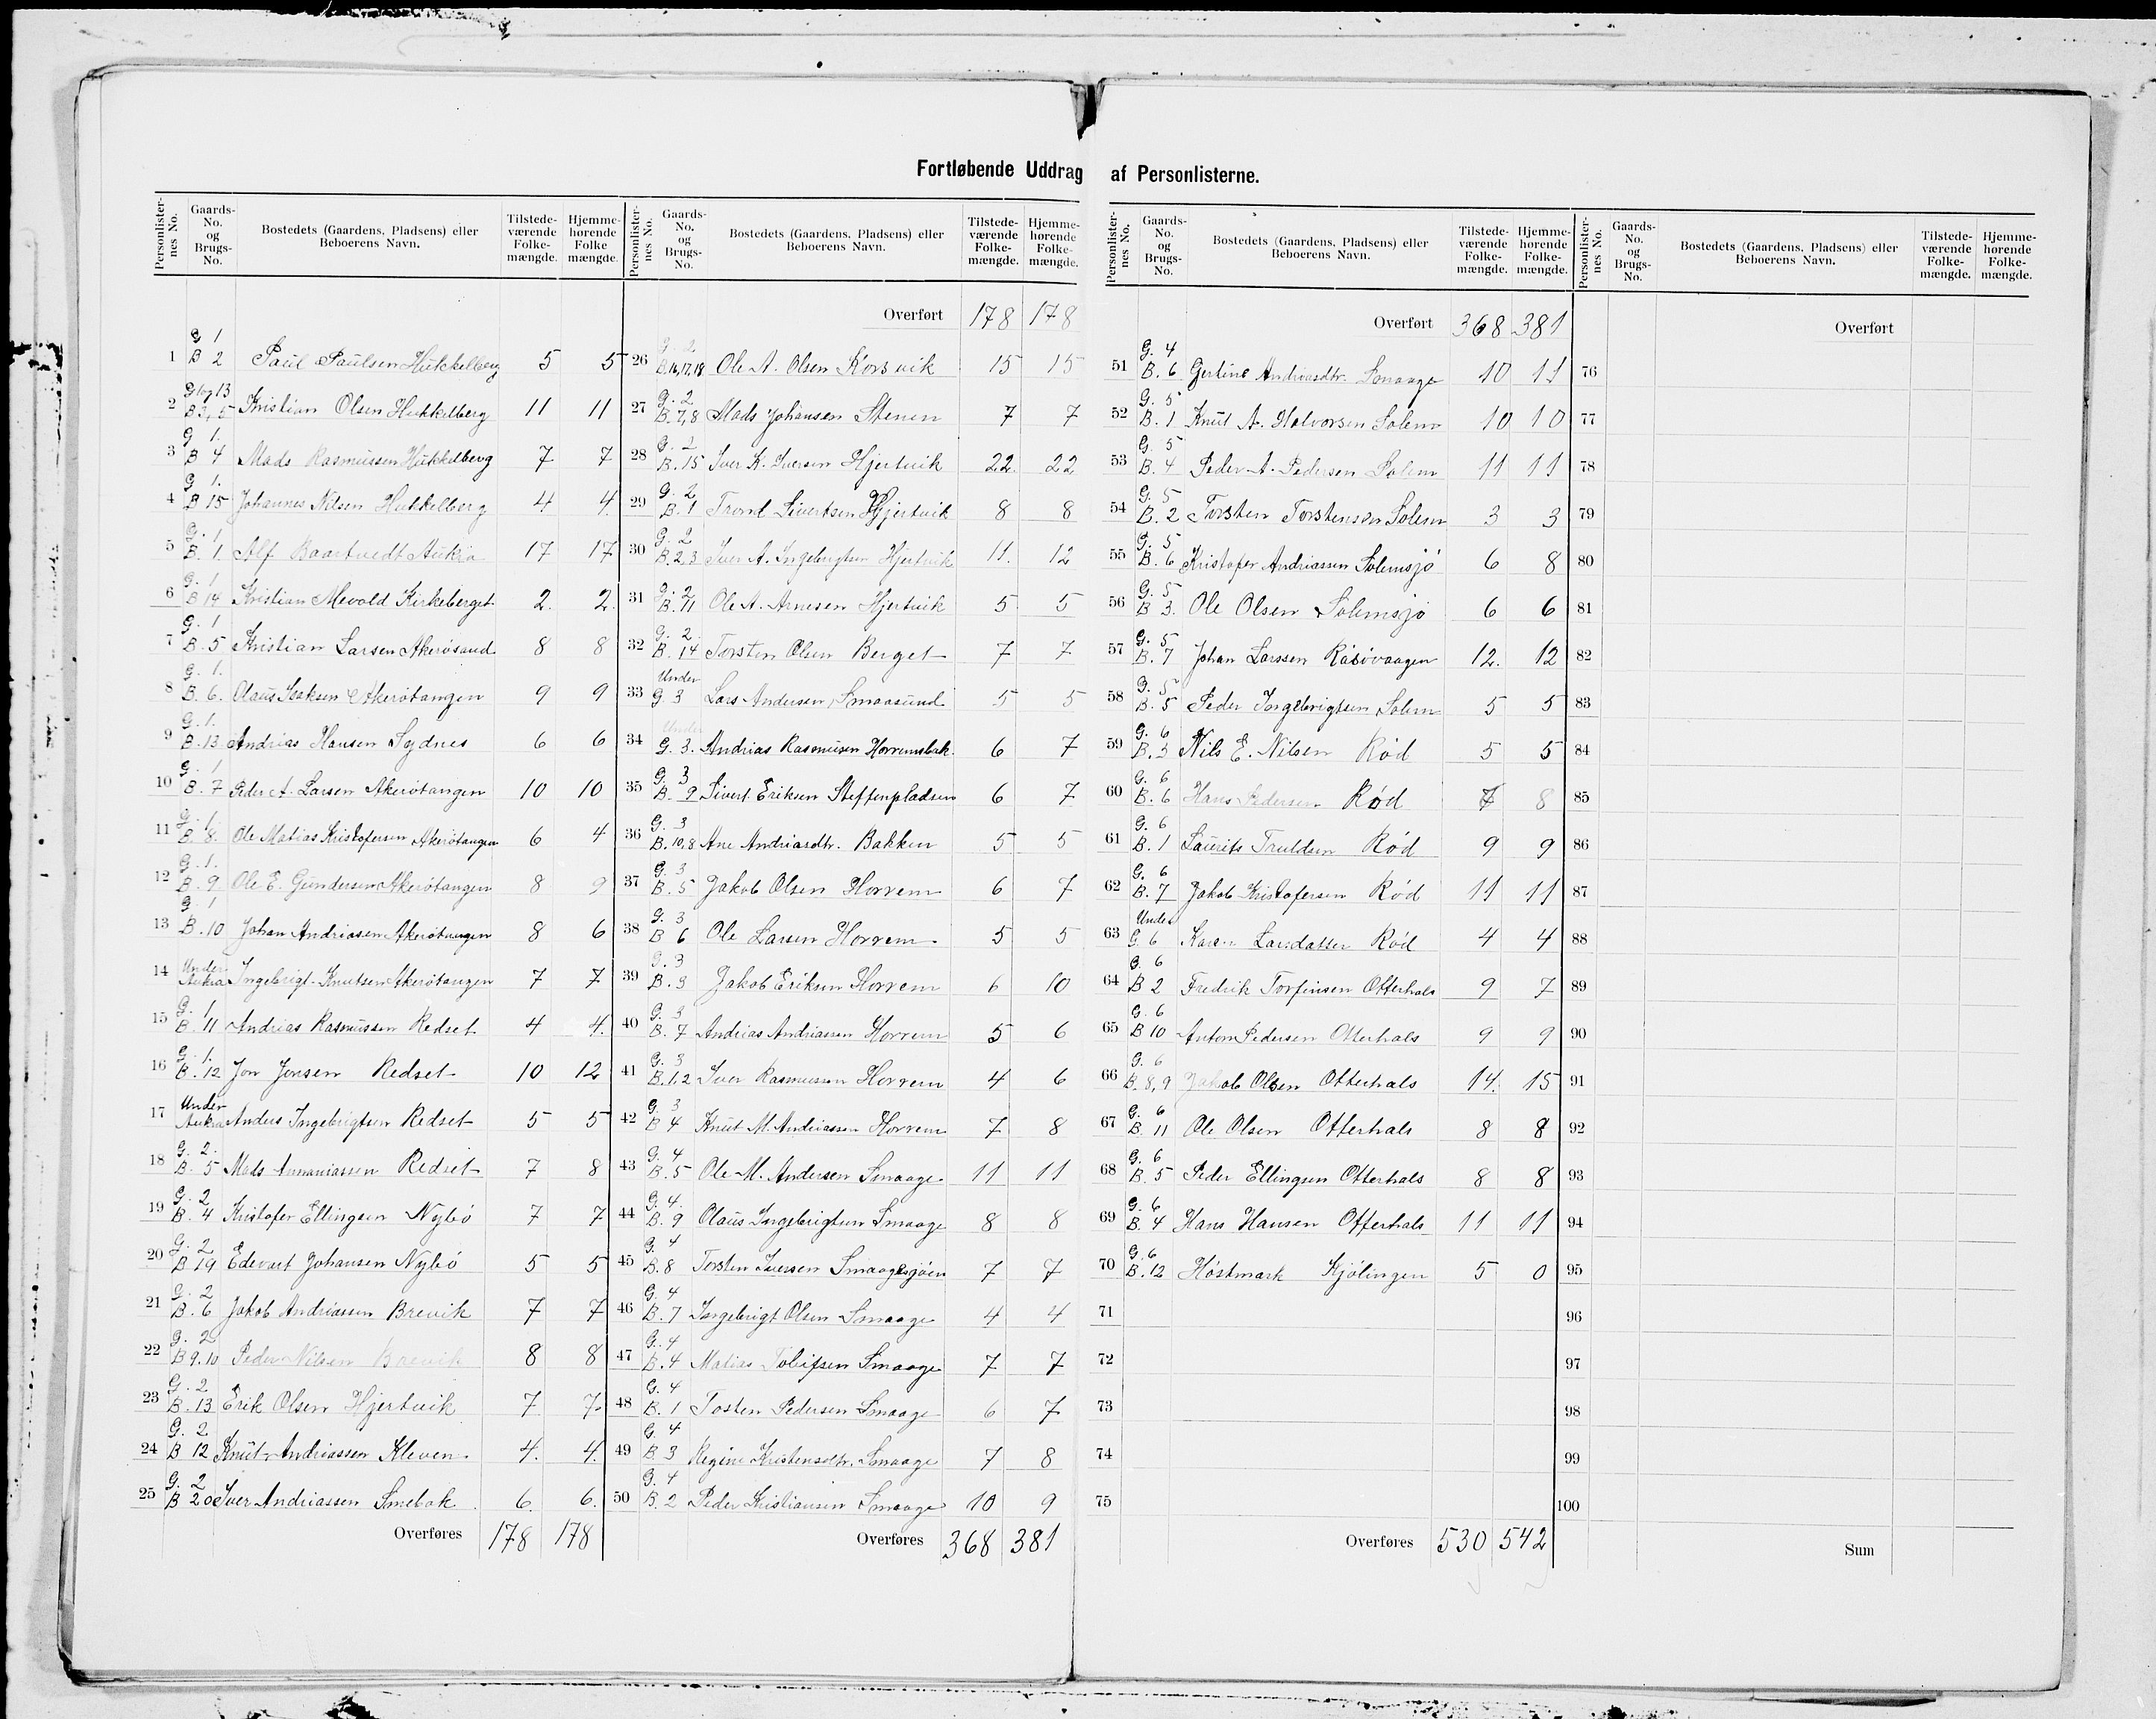 Fortløbende Uddrag af Personlisterne.
Personlisternes No. Gaards-No. og Brugs-No. Bostedets (Gaardens, Pladsens) eller Beboerens Navn. Tilstedeværende Folkemængde. Hjemmehørende Folkemængde.
G 1
1 B 2 Paul Paulsen Hukkelberg 5 5
G 1 og 13
2 B 3, 5 Kristian Olsen Hukkelberg 11 11
G 1.
3 B 4 Mads Rasmussen Hukkelberg 7 7
G 1.
4 B 15 Johannes Nilsen Hukkelberg 4 4
G. 1
5 B. 1. Alf Baartvedt Aukra 17 17
G. 1
6 B 14 Kristian Mevold Kirkeberget 2. 2.
G. 1
7 B. 5 Kristian Larsen Akerösund 8 8
G. 1.
8 B. 6. Olaus Isaksen Akerötangen 9 9
G. 1.
9 B. 13 Andrias Hansen Sydnes 6 6
G. 1
10 B. 7 Peder A. Larsen Akerötangen 10 10
G. 1.
11 B. 8. Ole Matias Kristofersen Akerötangen 6 4
G. 1.
12 B. 9 Ole E. Gundersen Akerötangen 8 9
G. 1
13 B. 10 Johan Andriasen Akerötangen 8 6
Under
14 Aukra Ingebrigt Knutsen Akerötangen 7 7
G. 1
15 B. 11 Andrias Rasmussen Redset 4 4.
G. 1.
16 B. 12 Jon Jonsen Redset 10 12
Under
17 Aukra Anders Ingebrigtsen Redset 5 5
G. 2.
18 B. 5 Mads Ananiassen Redset 7 8
G. 2
19 B. 4 Kristofer Ellingsen Nybö 7 7
G. 2
20 B 19 Edevart Johansen Nybö 5 5
G. 2
21 B. 6 Jakob Andriassen Brevik 7 7
G. 2
22 B 9. 10 Peder Nilsen Brevik 8 8
G. 2
23 B. 13 Erik Olsen Hjertvik 7 7.
G. 2
24 B 12 Knut Andriassen Kleven. 4. 4.
G. 2
25 B 20 Iver Andriassen Smebak. 6. 6.
Overføres 178 178
Overført 178 178
G. 2
26 B. 16, 17, 18 Ole A. Olsen Korsvik 15 15
G. 2
27 B. 7, 8 Mads Johansen Stenen 7 7
G. 2
28 B. 15 Iver K. Iversen Hjertvik 22. 22
G. 2
29 B. 1 Trond Sivertsen Hjertvik 8 8
G. 2
30 B. 2, 3 Iver A. Ingebrigtsen Hjertvik 11. 12
G. 2
31 B. 11 Ole A. Arnesen Hjertvik 5 5
G. 2.
32 B. 14 Torsten Olsen Berget 7 7
Under
33 G 3 Lars Andersen Smaasund 5 5
Under
34 G. 3. Andrias Rasmussen Horremsbak. 6 7
G. 3
35 B. 9 Sivert Eriksen Steffenpladsen 6 7
G. 3
36 B. 10, 8 Ane Andriasdtr. Bakken 5 5
G. 3
37 B. 5 Jakob Olsen Horrem 6 7
G. 3
38 B 6 Ole Larsen Horrem. 5 5
G. 3
39 B. 3 Jakob Eriksen Horrem 6 10
G. 3
40 B. 7 Andrias Andriassen Horrem 5 6
G. 3
41 B. 1, 2 Iver Rasmussen Horrem 4 6
G. 3
42 B 4 Knut M. Andriassen Horrem 7 8
G. 4
43 B. 5 Ole M. Andersen Smaage 11 11
G. 4.
44 B. 9 Olaus Ingebrigtsen Smaage 8 8
G. 4
45 B. 8 Torsten Iversen Smaagesjöen 7 7
G. 4
46 B. 7 Ingebrigt Olsen Smaage 4 4
G. 4
47 B. 4 Matias Toleifsen Smaage 7 7
G. 4
48 B. 1 Tosten Pedersen Smaage 6 7
G. 4
49 B. 3 Regine Kristensdtr. Smaage 7 8
G. 4
50 B. 2 Peder Kristiansen Smaage 10 9
Overføres 368 381
Overført 368 381
G. 4
51 B. 6 Gertine Andriasdtr. Smaage 10 11
G. 5
52 B. 1 Knut A. Halvorsen Solem 10 10
G. 5
53 B. 4 Peder A. Pedersen Solem 11 11
G. 5
54 B. 2 Torsten Torstensen Solem 3 3
G. 5
55 B. 6 Kristofer Andriassen Solemsjö 6 8
G. 5
56 B 3. Ole Olsen Solemsjö 6 6
G. 5
57 B. 7 Johan Larssen Räsövaagen 12. 12
G. 5
58 B. 5 Peder Ingebrigtsen Solem 5 5
G. 6
59 B. 3 Nils E. Nilsen Röd 5 5
G. 6
60 B. 6 Hans Pedersen Röd 7 8
G. 6
61 B. 1 Laurits Truldsen Röd 9 9
G. 6
62 B. 7 Jakob Kristofersen Röd 11 11
Under
63 G 6 Karen Larsdatter Röd 4 4
G. 6
64 B 2 Fredrik Torfinsen Otterhals 9 7
G. 6
65 B 10 Anton Pedersen Otterhals 9 9
G. 6
66 B. 8, 9 Jakob Olsen Otterhals 14. 15
G. 6
67 B. 11 Ole Olsen Otterhals 8 8
G. 6
68 B. 5 Peder Ellingsen Otterhals 8 8
G. 6
69 B. 4 Hans Hansen Otterhals 11 11
G. 6
70 B. 12 Höstmark Kjölingen 5 0
71
72
73
74
75
Overføres 530 542
Overført
76
77
78
79
80
81
82
83
84
85
86
87
88
89
90
91
92
93
94
95
96
97
98
99
100
Sum